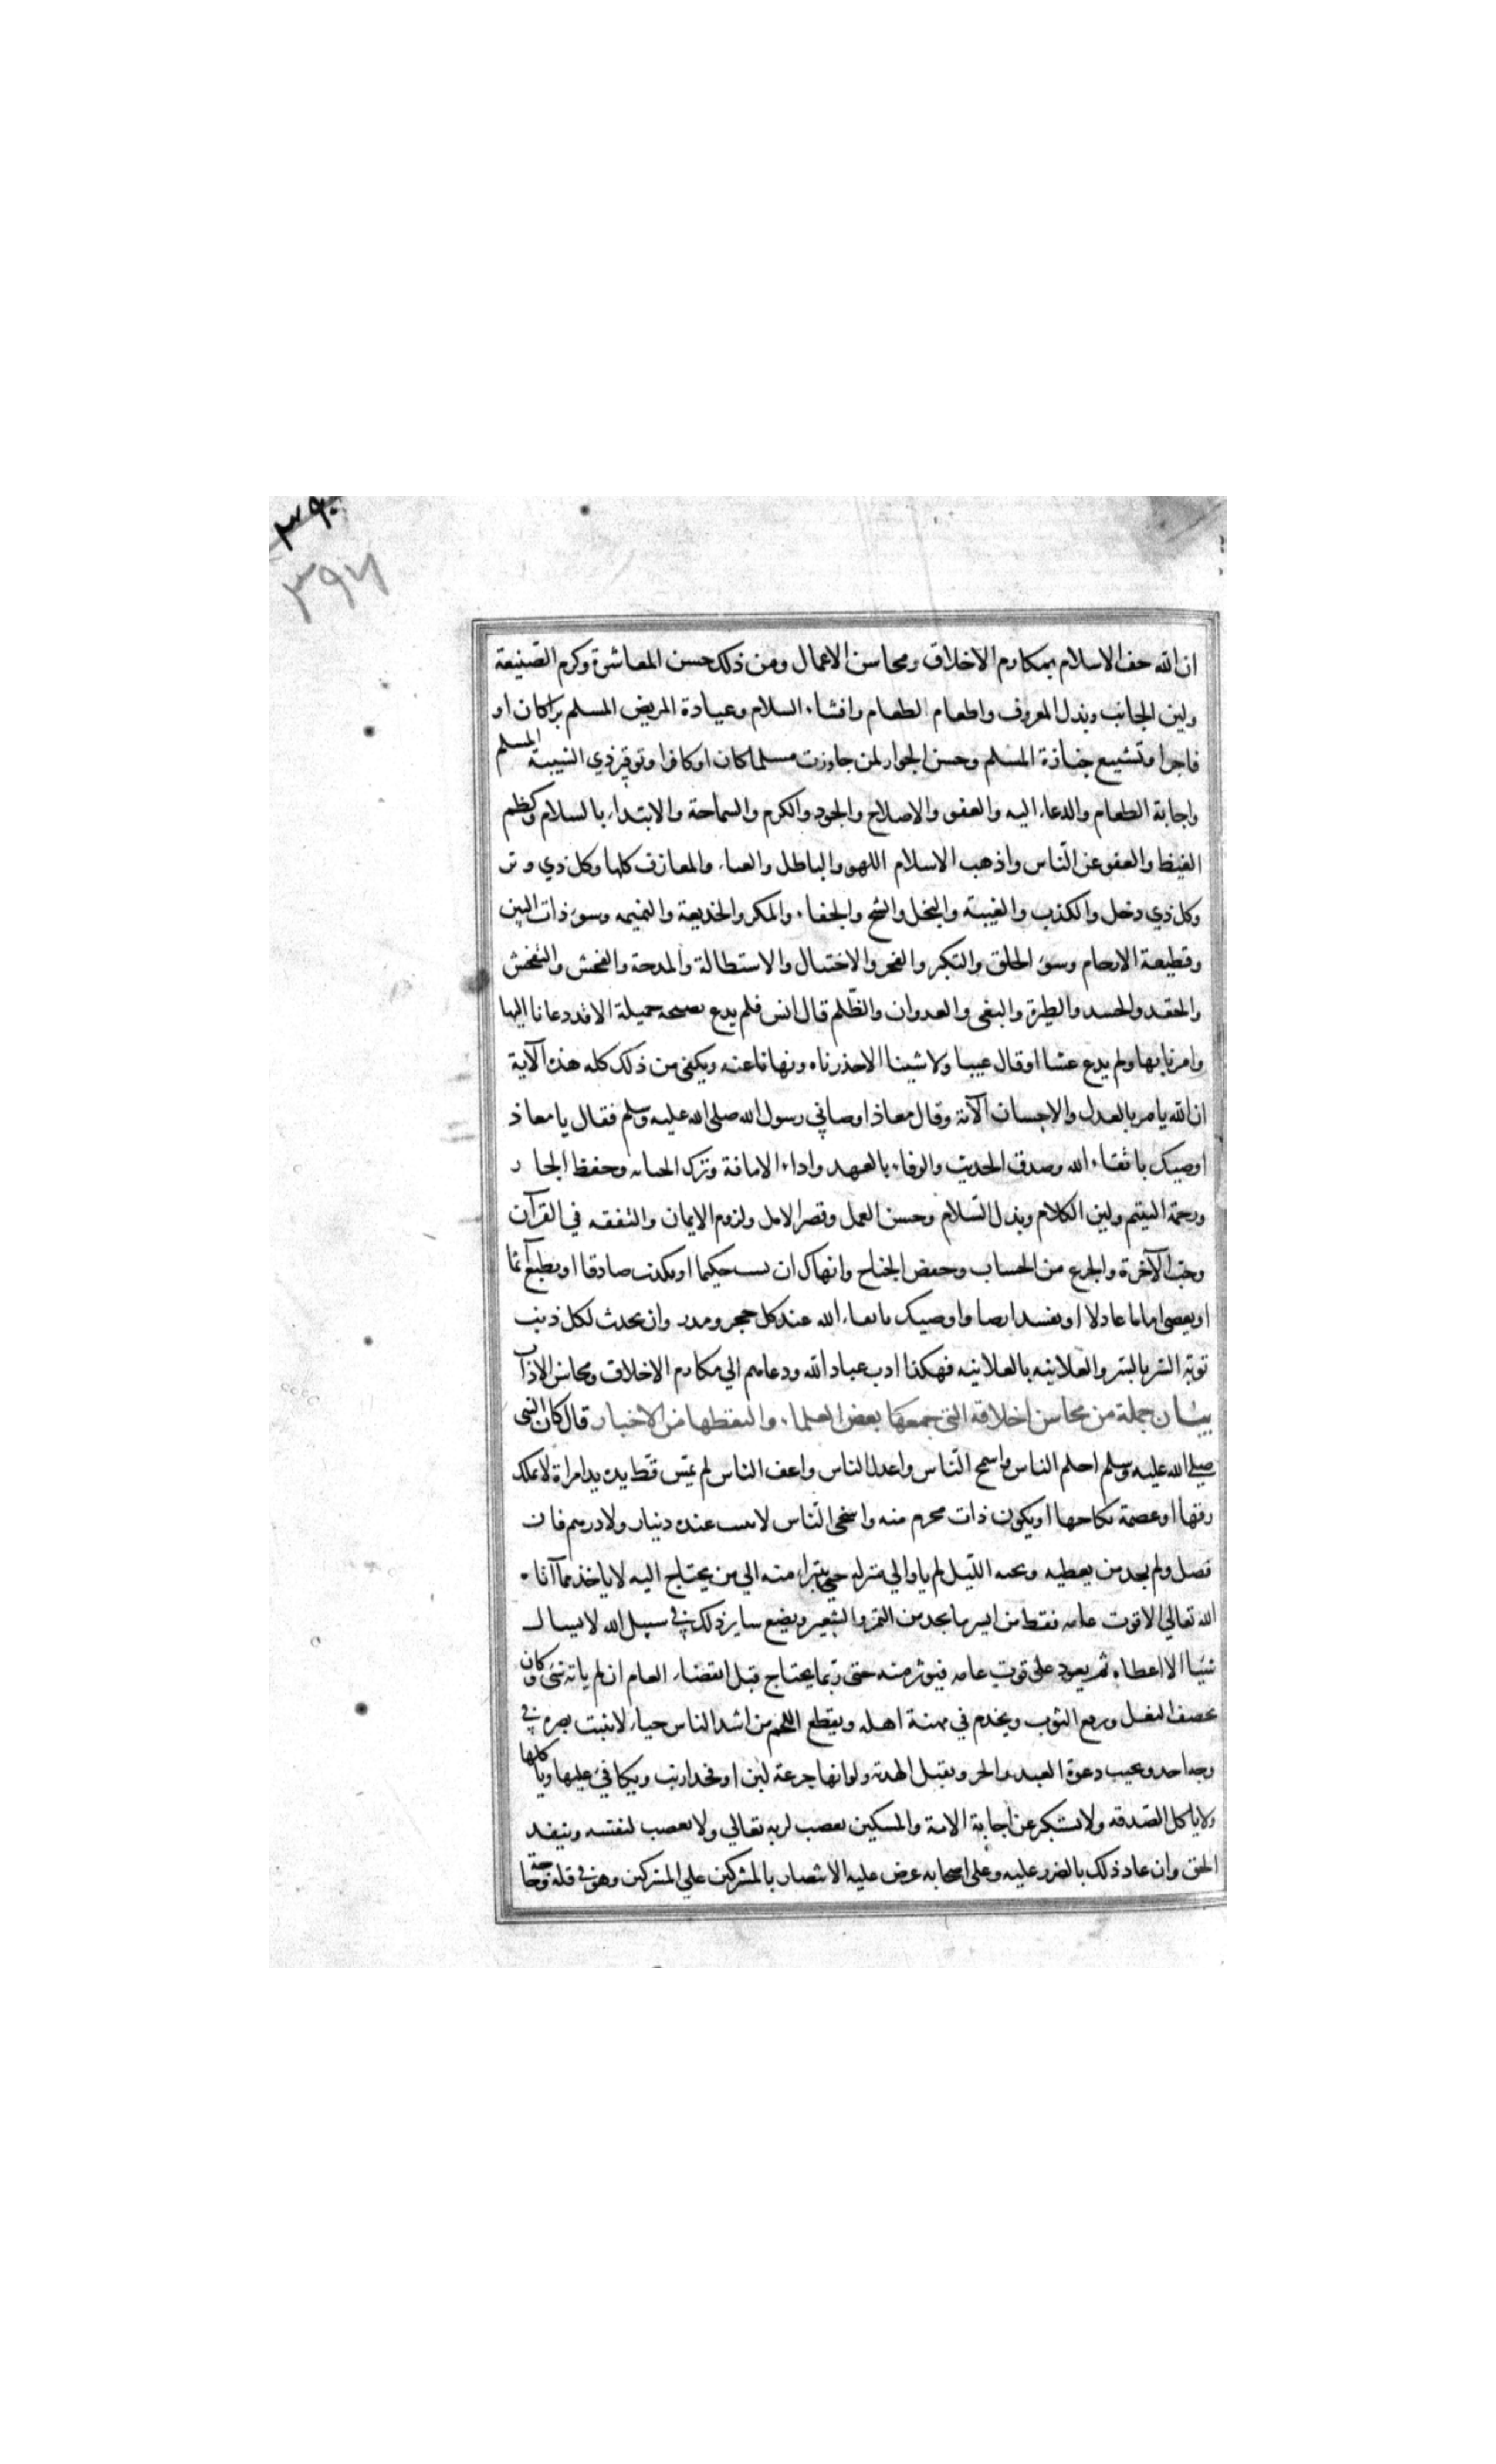 ٣٩٠
٣٩٦
ان الله حف الاسلام بمكارم الاخلاق ومحاسن الاعمال ومن ذلك حسن المعاشرة وكرم الصنيعة
ولين الجانب وبذل المعروف واطعام الطعام وافشاء السلام وعيادة المريض المسلم براكان او
فاجرا وتشييع جنازة المسلم وحسن الجوار لمن جاورت مسلما كان او كافرا وتوقير ذي الشيبة المسلم
واجابة الطعام والدعاء اليه والعفو والاصلاح والجود والكرم والسماحة والابتداء بالسلام وكظم
الغيظ والعفو عن الناس واذهب الاسلام اللهو والباطل والغناء والمعازف كلها وكل ذي وتر
وكل ذي دخل والكذب والغيبة والبخل والشح والجفاء والمكر والخديعة والنميمه وسوء ذات البين
وقطيعة الارحام وسوء الخلق والتكبر والفخر والاختيال والاستطالة والمدحة والفحش والتفحش
والحقد والحسد والطيرة والبغى والعدوان والظلم قال انس فلم يدع نصيحه جميلة الا قد دعانا اليها
وامرنا بها ولم يدع غشا او قال عيبا ولا شينا الا حذرناه ونهانا عنه ويكفى من ذلك كله هذه الآية
ان الله يامر بالعدل والاحسان الآية وقال معاذ اوصاني رسول الله صلى الله عليه وسلم فقال يا معاذ
اوصيك باتقاء الله وصدق الحديث والوفاء بالعهد واداء الامانة وترك الخيانه وحفظ الجار
ورحمة اليتيم ولين الكلام وبذل السلام وحسن العمل وقصر الامل ولزوم الايمان والتفقه في القرآن
وحب الآخرة والجزع من الحساب وخفض الجناح وانهاك ان تسب حكيما او تكذب صادقا او تطيع آثما
او تعصى اماما عادلا او تفسد ارضا واوصيك باتقاء الله عند كل حجر ومدر وان تحدث لكل ذنب
توبة السر بالسر والعلانيه بالعلانيه فهكذا ادب عباد الله ودعاهم الي مكارم الاخلاق ومحاسن الاداب
بيان جملة من محاسن اخلاقه التي جمعها بعض العلماء والتقطها من الاخبار قال كان النبى
صلى الله عليه وسلم احلم الناس واسمح الناس واعدل الناس واعف الناس لم تمس قط يده يد امراة لا يملك
رقها او عصمة نكاحها او يكون ذات محرم منه واسخى الناس لا يبيت عنده دينار ولا درهم فان
فضل ولم يجد من يعطيه وبحه الليل لم ياو الي منزله حتى يتبرا منه الي من يحتاج اليه لا ياخذ مما آتاه
الله تعالي الا قوت عامه فقط من ايسر ما يجد من التمر والشعير ويضع ساير ذلك في سبيل الله لا يسال
شيئا الا اعطاه ثم يعود على قوت عامه فيوثر منه حتى ربما يحتاج قبل انقضاء العام ان لم ياته شئ وكان
يخصف النعل ويرقع الثوب ويخدم في مهنة اهله ويقطع اللحم من اشد الناس حياء لا يثبت بصره في
وجه احد ويجيب دعوة العبد والحر ويقبل الهدية ولو انها جرعة لبن او فخذ ارنب ويكافئ عليها وياكلها
ولا ياكل الصدقه ولا يستكبر عن اجابة الامة والمسكين يغضب لربه تعالي ولا يغضب لنفسه وينفذ
الحق وان عاد ذلك بالضرر عليه وعلى اصحابه عرض عليه الانتصار بالمشركين علي المشركين وهو في قلة وحاجة